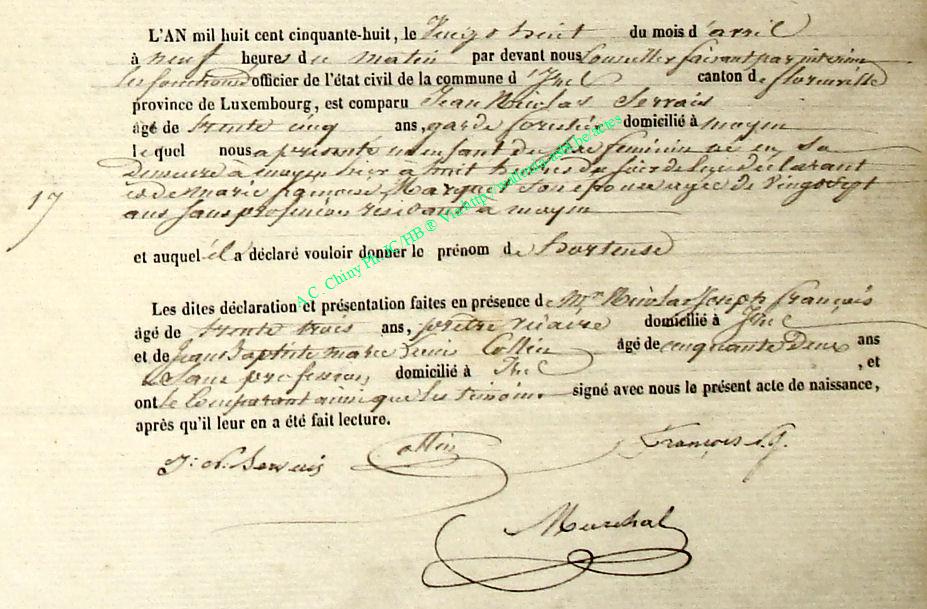 L'AN mil huit cent cinquante-huit, le Vingt huit du mois d'avril
à neuf heures du matin par devant nous Conseiller faisant par interim
les fonctions officier de l'état civil de la commune d'Izel canton de florenville
province de Luxembourg, est comparu Jean Nicolas Servais
âgé de trente cinq ans, garde forestier domicilié à moyen
lequel nous a présenté un enfant du sexe feminin né en sa
demeure à moyen hier à huit heures du soir de lui déclarant
et de marie françoise Marquet son epouse agée de vingt sept
ans sans profession residant à moyen
17
et auquel il a déclaré vouloir donner le prénom de hortense
Les dites déclaration et présentation faites en présence de Mr. Nicolas Joseph françois
âgé de trente trois ans, prêtre vicaire domicilié à Izel
et de Jean Baptiste marie Denis Collin âgé de cinquante deux ans
Sans profession, domicilié à Izel, et
ont le Comparant ainsi que les témoins signé avec nous le présent acte de naissance,
après qu'il leur en a été fait lecture.
J: N. Servais Collin François N.J.
Marchal
A.C Chiny Ph. JC/HB ®